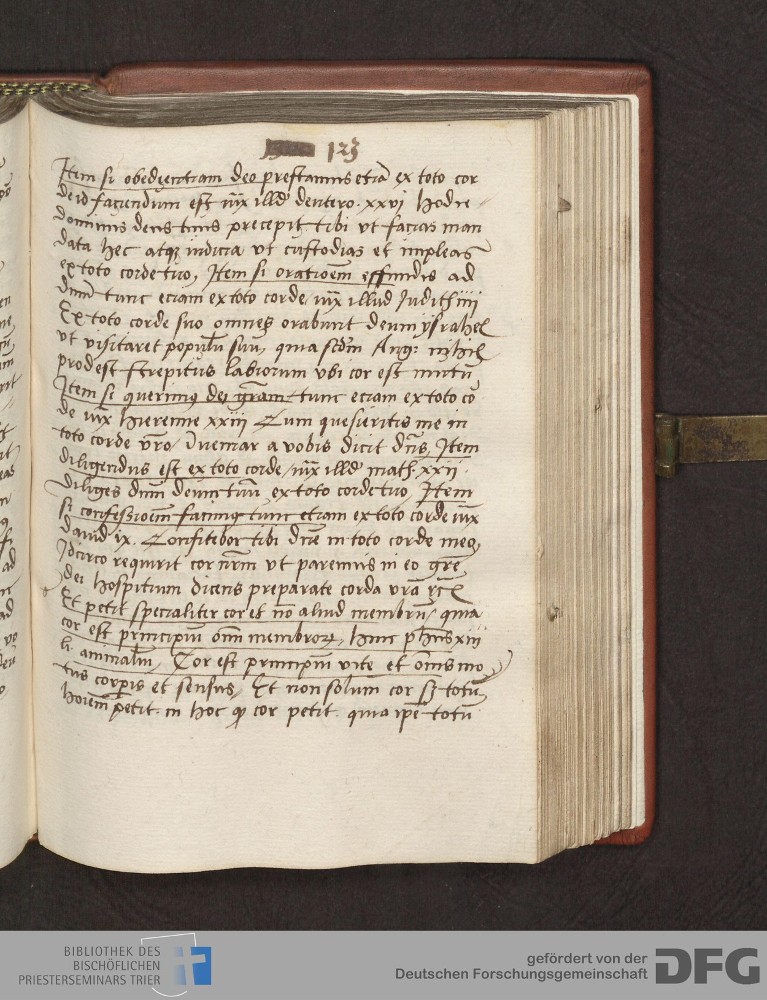 123
Item si obedientiam deo prestamus etiā ex toto cor
de id faciendum est iux illd deutero. xxvi hodie
dominus deus tuus precepit tibi ut facias man
data hec atqz iudicia ut custodias et impleas
ex toto corde tuo, Item si orationem effundis ad
dnm tunc eciam ex toto corde, iux illud Judith iiii
Ex toto corde suo omnes orabunt deum ysrahel
ut visitaret populū suū, quia scdm Aug: nihil
prodest strepitus labiorum ubi cor est mutū
Item si querimus dei grām tunc eciam ex toto co
de iux hieremie xxiii Cum quesieritis me in
toto corde vro, Inveniar a vobis dicit dns, Item
diligendus est ex toto corde, iux illd math. xxii.
diliges dnm deum tuū ex toto corde tuo, Item
si confessioem facimus tunc etiam ex toto corde iux
david ix. Confitebor tibi dne in toto corde meo,
Idcirco requirit cor nrm ut paremus in eo gre
dei hospitium dicens preparate corda vra
Et petit specialiter cor et nō aliud membrū, quia
cor est principiū oīm membrorz, hinc phus xiii
li. animaliū, Cor est principiū vite et omis mo
tus corpis et sensus, Et non solum cor sz totū
hoiem petit. in hoc qz cor petit. quia ipe totū
BIBLIOTHEK DES
BISCHÖFLICHEN
PRIESTERSEMINARS TRIER
gefördert von der
Deutschen Forschungsgemeinschaft
DFG